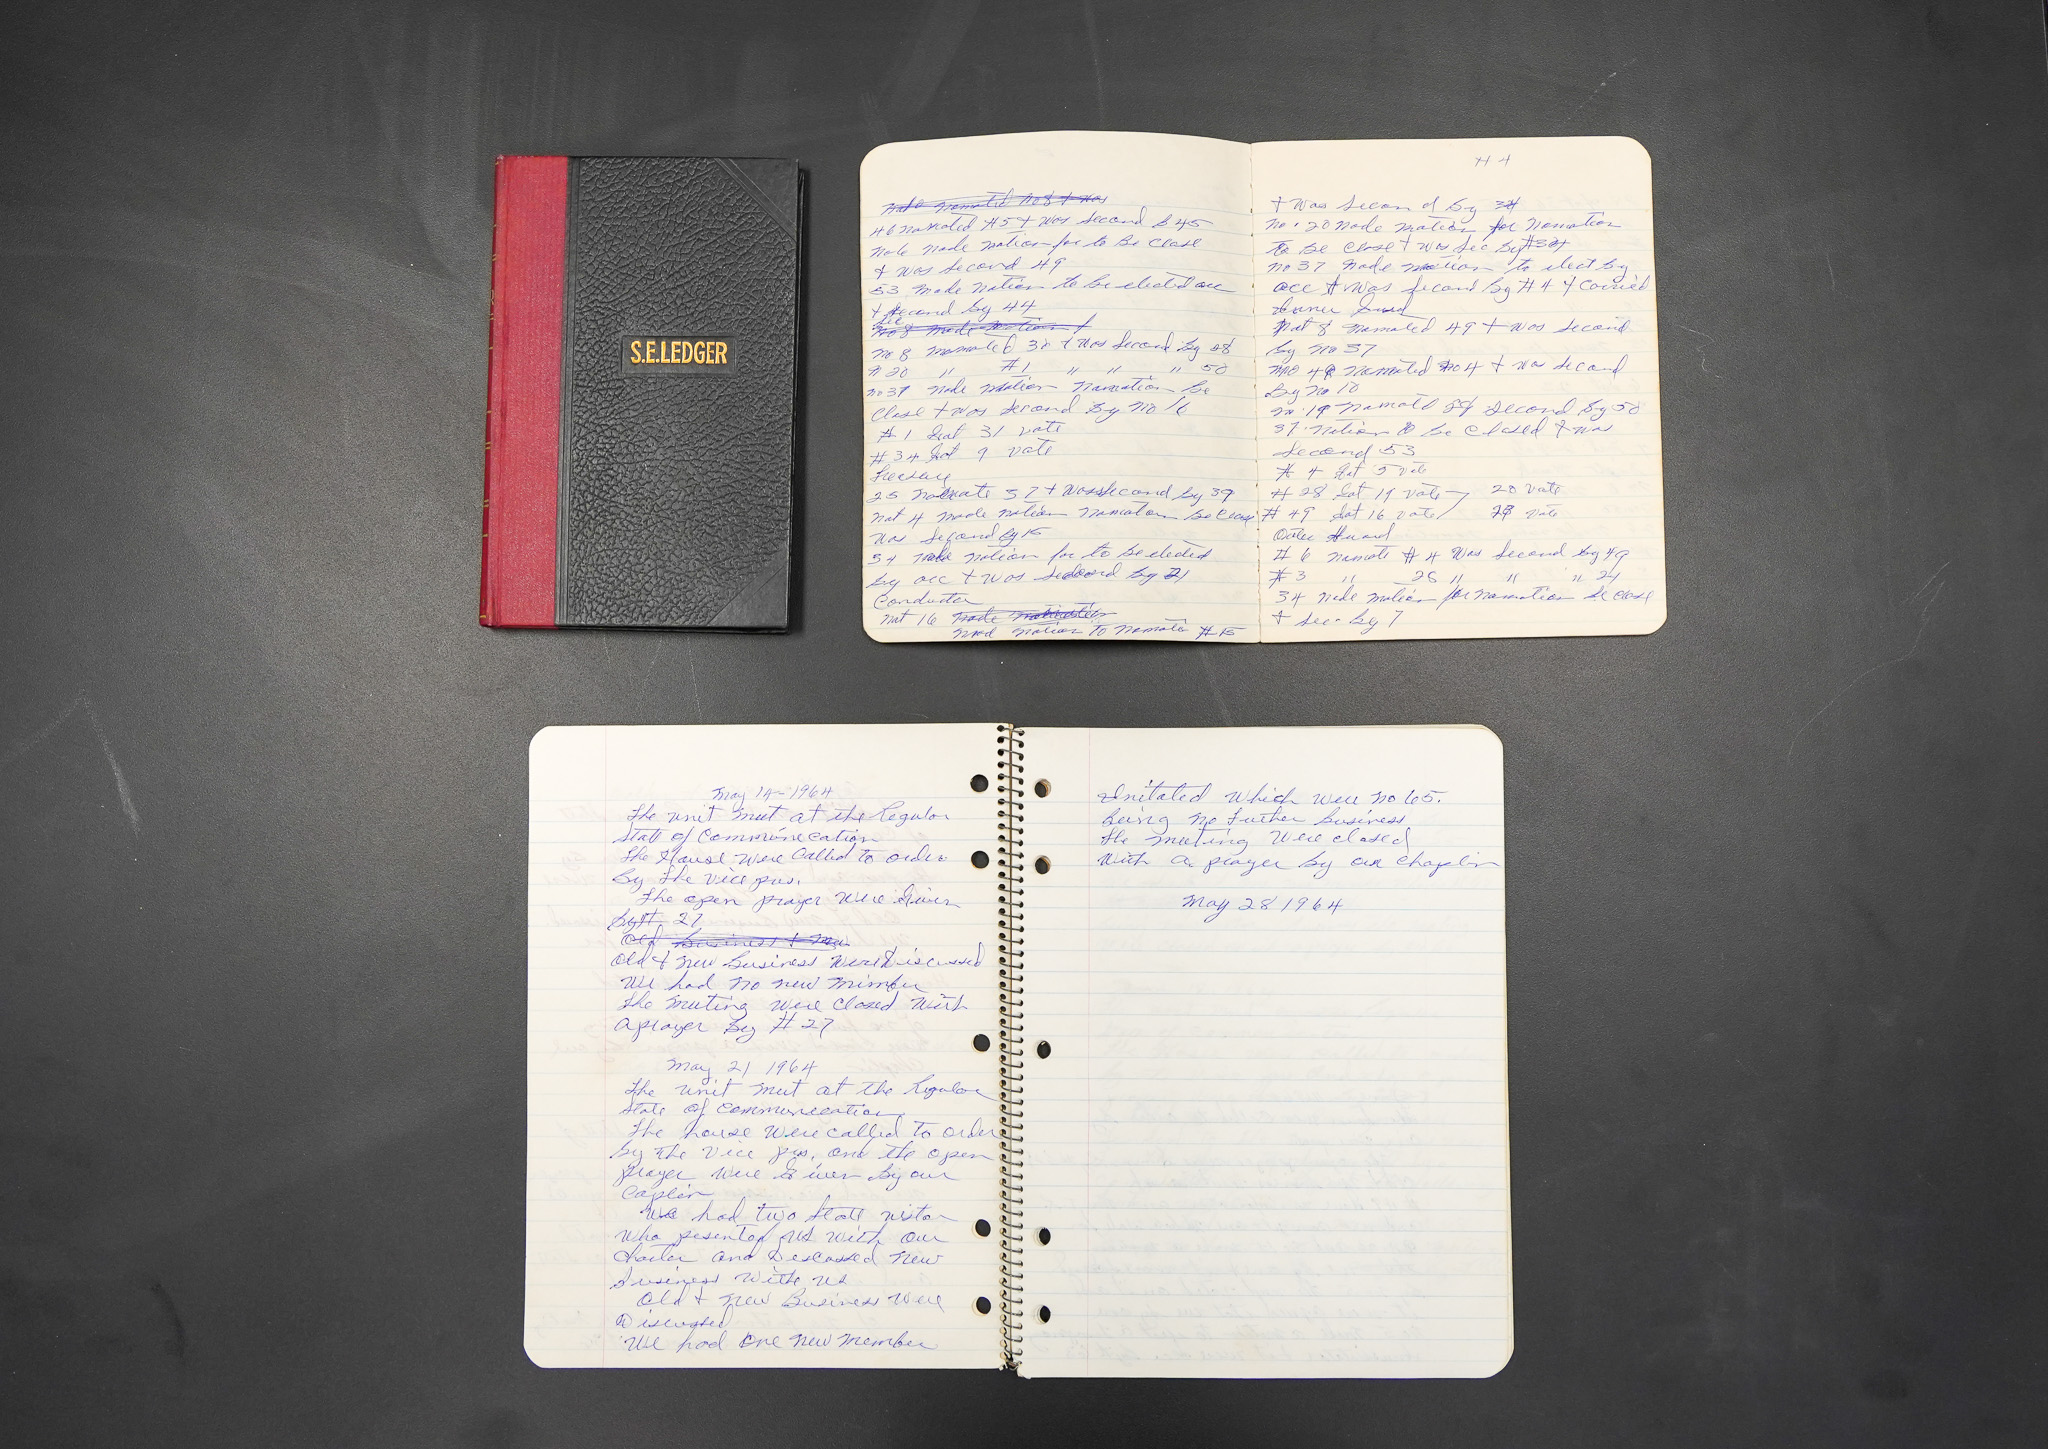 S.E.LEDGER
Made Nomated No 8 + was
#6 Nomated #5 + was second B 45
No 6 made motion for to Be close
+ was second 49
53 made motion to be elected acc
+ second by 44
Sec
No 8 made motion
No 8 Nomated 34 + was second by 28
# 20 " #1 " " " 50
No 37 made motion nomation Be
close + was second By No 16
# 1 Got 31 vote
# 34 Got 9 vote
25 nomate 37 + was second by 39
Not 4 made motion nomation Be close
was second by 15
34 made motion for to be elected
by acc + was second by 21
Conductor
Not 16 made
made motion to nomate #15
#4
+ was second by 34
No. 20 made motion for nomation
to be close + was sec by #34
No 37 made motion to elect by
acc + was second by #44 carried
Inner Guard
Not 8 nomated 49 + was second
by No 37
No 49 nomated No 4 + was second
By No 10
No. 19 nomated 28 second by 50
37 motion to be closed + was
second 53
# 4 Got 5 vote
# 28 Got 19 vote 20 vote
# 49 Got 16 vote vote
Outer Guard
# 6 nomate # 4 was second by 49
# 3 " 28 " " " 24
34 made motion for nomation be close
+ sec. by 7
May 14-1964
The unit meet at the Regular
State of Communecation
The House were called to order
by the vice pres.
The open prayer were given
by # 27
Old Business + New
Old + New Business were Discussed
We had no new mimber
The meeting were closed with
a prayer By # 27
May 21 1964
The unit meet at the Regular
State of Communecation
The house were called to order
by the vice pres. and the open
prayer were given by our
Caplin
We had two State vistor
who pesented us with our
charter and Descussed New
Business with us
Old + New Business were
Discussed
We had one new member
Initated which were No 65.
Being no futher business
the meeting were closed
with a prayer by our chaplin
May 28 1964